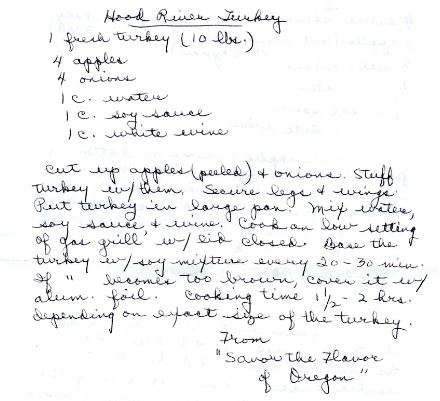 Hood River Turkey
1 fresh turkey (10 lbs.)
4 apples
4 onions
1 c. water
1 c. soy sauce
1 c. white wine
Cut up apples (peeled) & onions. Stuff
turkey w/them. Secure legs & wings.
Put turkey in large pan. Mix water,
soy sauce & wine. Cook on low setting
of gas grill w/ lid closed. Base the
turkey w/soy mixture every 20-30 min.
If " becomes too brown, cover it w/
alum. foil. Cooking time 1 1/2 - 2 hrs.
depending on exact size of the turkey.
From
"Savor the Flavor
of Oregon"